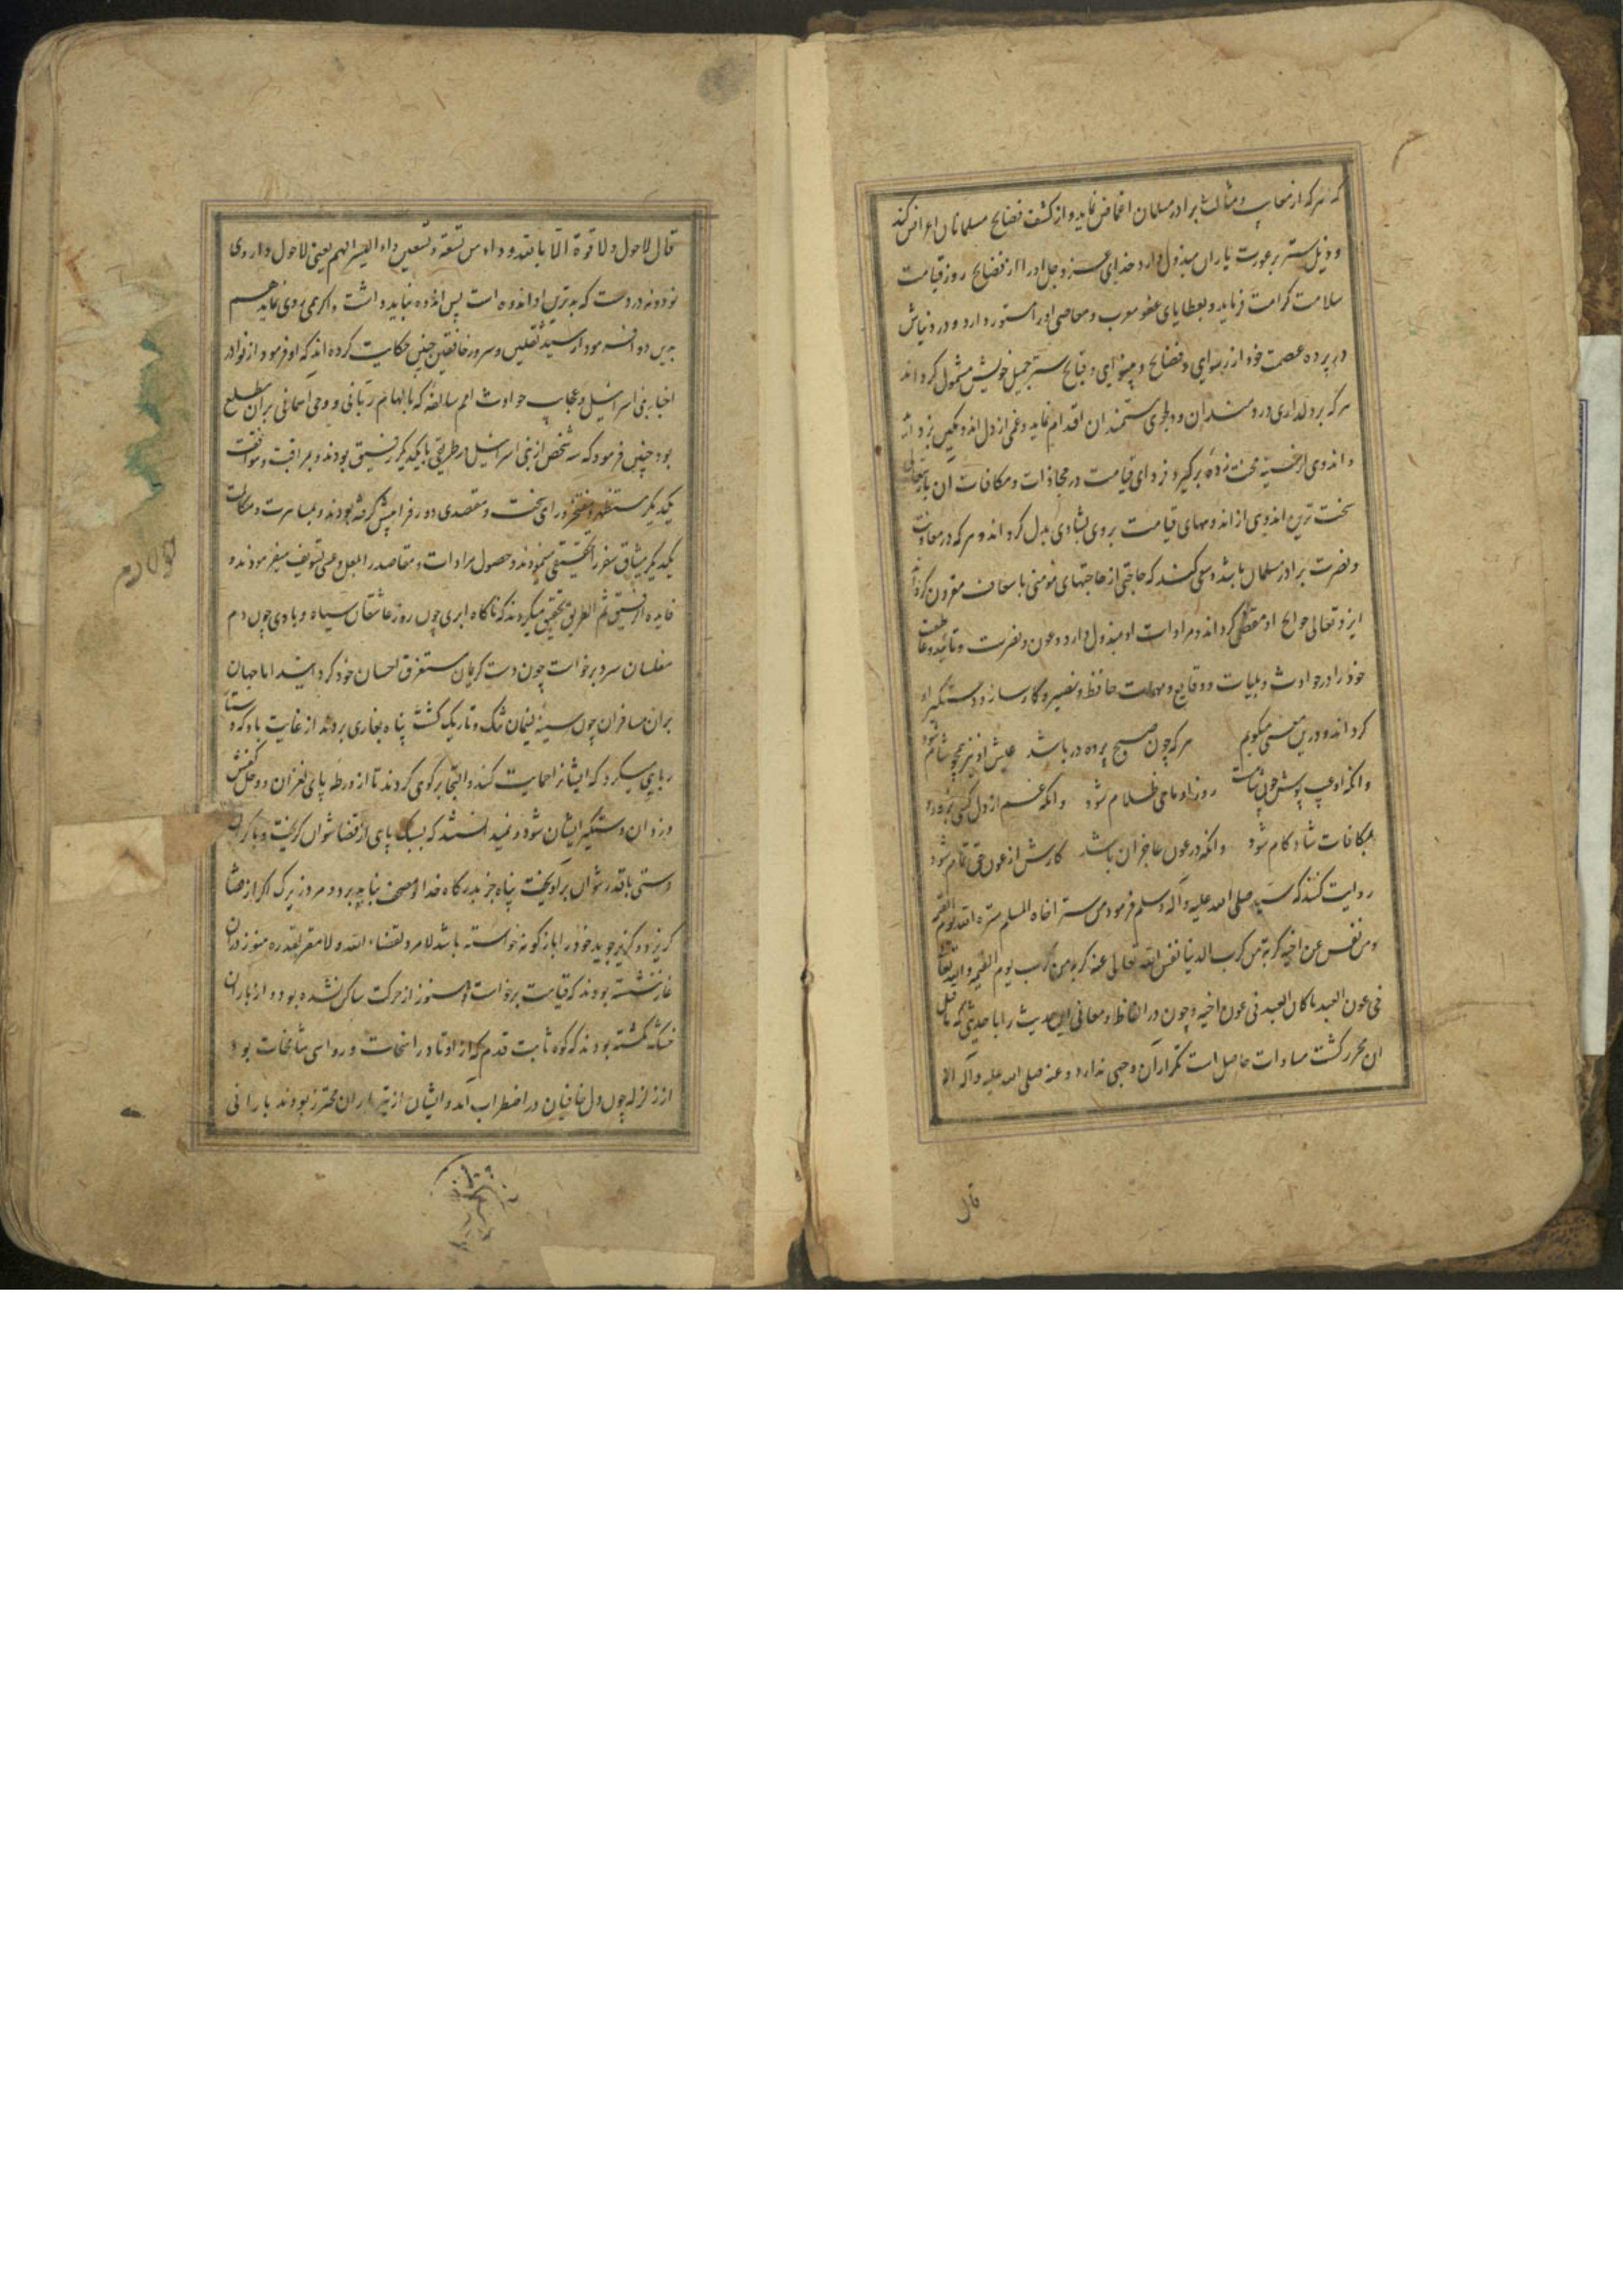 که هرکه از معایب و مثالب برادر مسلمان اغماض نماید و از کشف فضایح مسلمانان اعراض کند
و ذیل ستر بر عورت یاران مبذول دارد خدای عز و جل او را از فضایح روز قیامت
سلامت کرامت فرماید و بعطایای عفو معایب و معاصی او را مستور دارد و در دنیاش
در پرده عصمت خود از رسوایی و فضایح و قبایح بستر جمیل خویش مشمول کرداند
هرکه بر دلداری دردمندان و دلجوی مستمندان اقدام نماید و غمی از دل اندوهکین بردارد
و اندوهی از خسته محنت زده برکیرد فردای قیامت در مجازات و مکافات آن باری تعالی
سخت ترین اندوهی از اندوههای قیامت بروی بشادی بدل کرداند و هرکه در معاونت
و نصرت برادر مسلمان باشد و سعی کند که حاجتی از حاجتهای مومنی باسعاف مقرون کرداند
ایزد تعالی حوایج او مقضی کرداند و مرادات او مبذول دارد و عون و نصرت و تایید
خود را در حوادث و بلیات و وقایع و مهمات حافظ و نصیر و کارساز و دستکیر او
کرداند و درین معنی میکویم هرکه چون صبح پرده در باشد عیش او نیز همچو شام شود
وانکه او عیب پوش چون شب روز او ماحی ظلام شود وانکه غم از دل کسی بزدود
بمکافات شادکام شود وانکه در عون عاجزان باشد کارش از عون حق تمام شود
روایت کنند که سید صلی الله علیه و آله وسلم فرمود من ستر اخاه المسلم ستره الله یوم القیمة
ومن نفس عن اخیه کربة من کرب الدنیا نفس الله تعالی عنه کربة من کرب یوم القیمة والله تعالی
فی عون العبد ما کان العبد فی عون اخیه و چون در الفاظ و معانی این حدیث را با حدیثی که ما قبل
ان محرر کشت مساوات حاصل است تکرار آن وجهی ندارد و عنه صلی الله علیه و آله انه
قال
قال لا حول ولا قوة الا بالله دواء من تسعة و تسعین داء ایسرها الهم یعنی لاحول داروی
نود و نه دردست که بدترین او اندوه است پس اندوه نباید داشت و اکر همی روی نماید هم
بدین دوا فرمود از سید ثقلین و سرور خافقین چنین حکایت کرده اند که او فرمود از نوادر
اخبار بنی اسرائیل و عجایب حوادث امم سالفه که بالهام ربانی و وحی آسمانی بر آن مطلع
بود چنین فرمود که سه شخص از بنی اسرائیل در طریقی با یکدیکر رفیق بودند و بمراقبت و موافقت
یکدیکر مستظهر و مفتخر و رای سخت و مقصدی دور فرا پیش کرفته بودند و بمسامرت و مکالمت
یکدیکر میثاق سفر را تخفیفی مینمودند و حصول مرادات و مقاصد را بلعل و عسی تسویف میفرمودند و
فایده الرفیق ثم الطریق تحقیق میکردند که ناکاه ابری چون روز عاشقان سیاه و بادی چون دم
مفلسان سرد برخاست چون دست کریمان مستغرق احسان خود کردانید اما جهان
بران مسافران چون سینه لئیمان تنک و تاریک کشت پناه بغاری بردند از غایت باد که
ربایی میکرد که ایشانرا حمایت کند و التجا بر کوهی کردند تا از ورطه پای لغزان و وحل
ورزدان دستکیر ایشان شود و نمیدانستند که بسبک پای از قضا نتوان کریخت و با
دستی با قدر نتوان برآویخت پناه جز بدرکاه خدا نباید برد و مرد زیرک اکر از قضا
کریزد و کریز جوید خود را باز کونه خواسته باشد لا مرد لقضاء الله ولا مفر لقدره هنوز در آن
غار ننشسته بودند که قیامت برخاست و هنوز از حرکت ساکن نشده بود و از باران
خشک نکشته بودند که کوه ثابت قدم که از اوتاد راسخات و رواسی شامخات بود
از زلزله چون دل خافیان در اضطراب آمد و ایشان از تیر باران محترز بودند بارانی